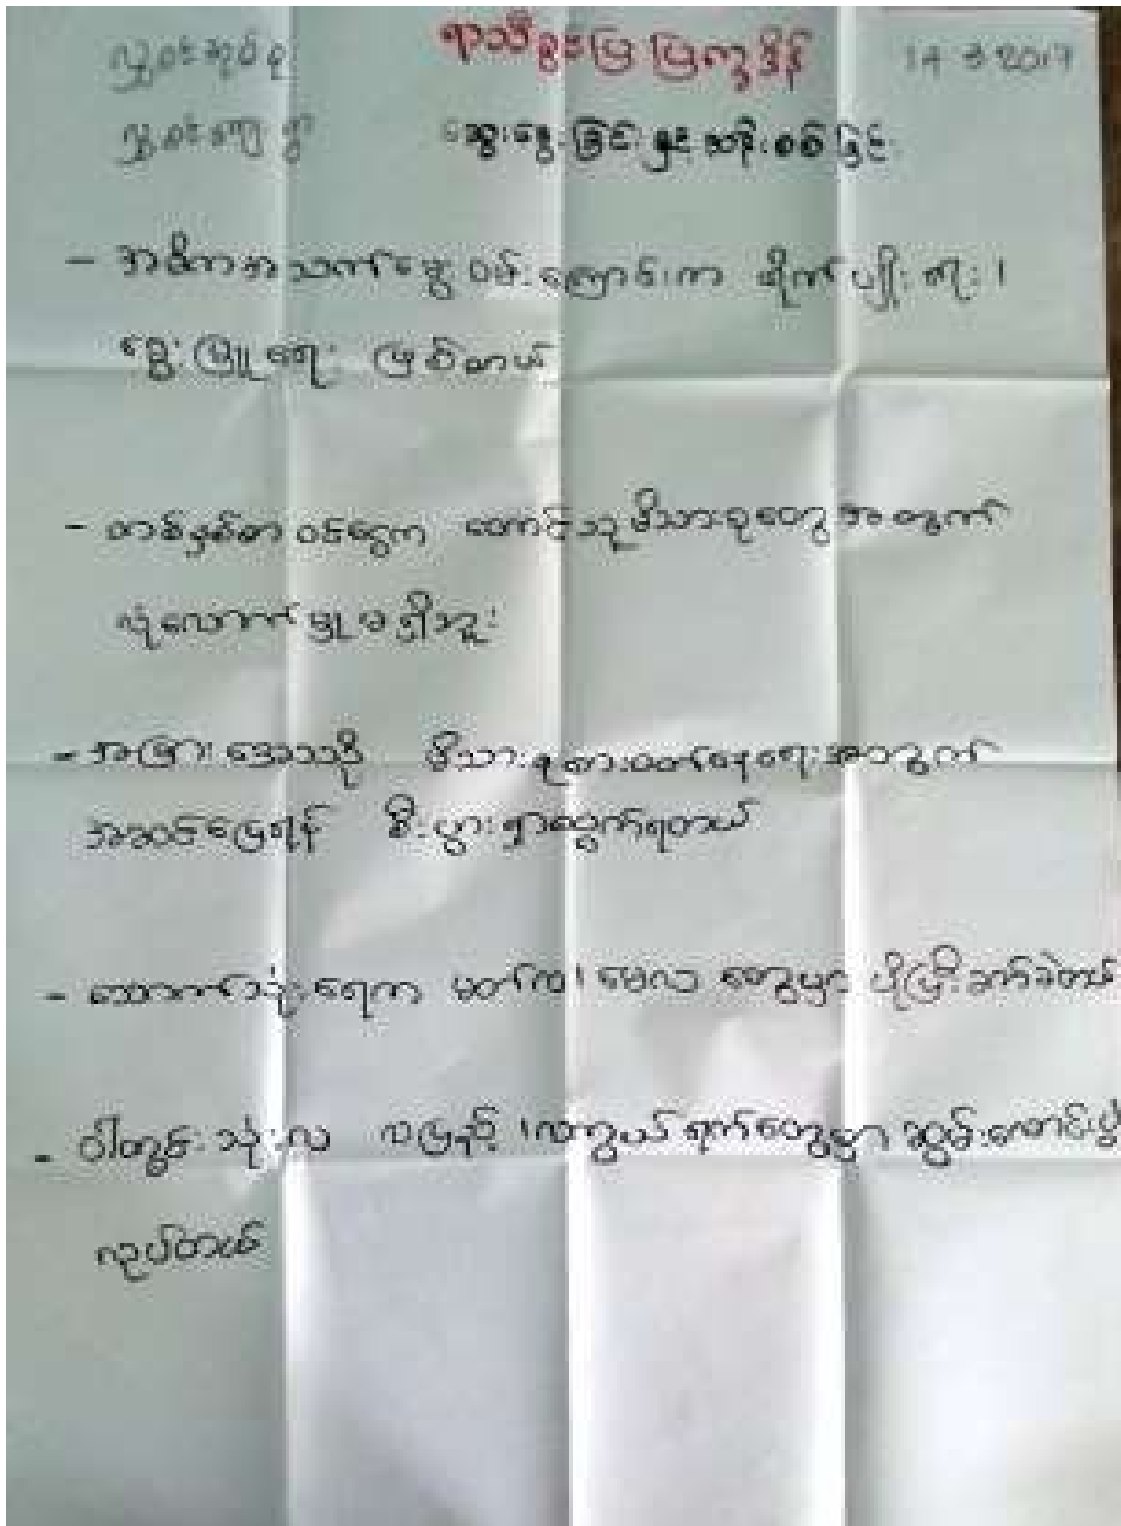 ရာသီခွင်ပြ ပြက္ခဒိန် 14 3 2017
ဆွေးနွေးခြင်းနှင့် သုံးသပ်ခြင်း
- အဓိကအသက်မွေးဝမ်းကြောင်းက စိုက်ပျိုးရေး၊
မွေးမြူရေး ဖြစ်တယ်
- တစ်နှစ်တာ ဝင်ငွေက တောင်သူမိသားစုတွေအတွက်
လုံလောက်မှု မရှိဘူး
- အခြားဒေသသို့ မိသားစုစားဝတ်နေရေးအတွက်
အဆင်ပြေရန် စီးပွားရှာထွက်ရတယ်
- သောက်သုံးရေက မတ်လ၊ မေလ တွေမှာ ပိုပြီးခက်ခဲတယ်
- ဝါတွင်းသုံးလ လပြည့်၊ လကွယ်ရက်တွေမှာ ဆွမ်းလောင်းပွဲ
လုပ်တယ်